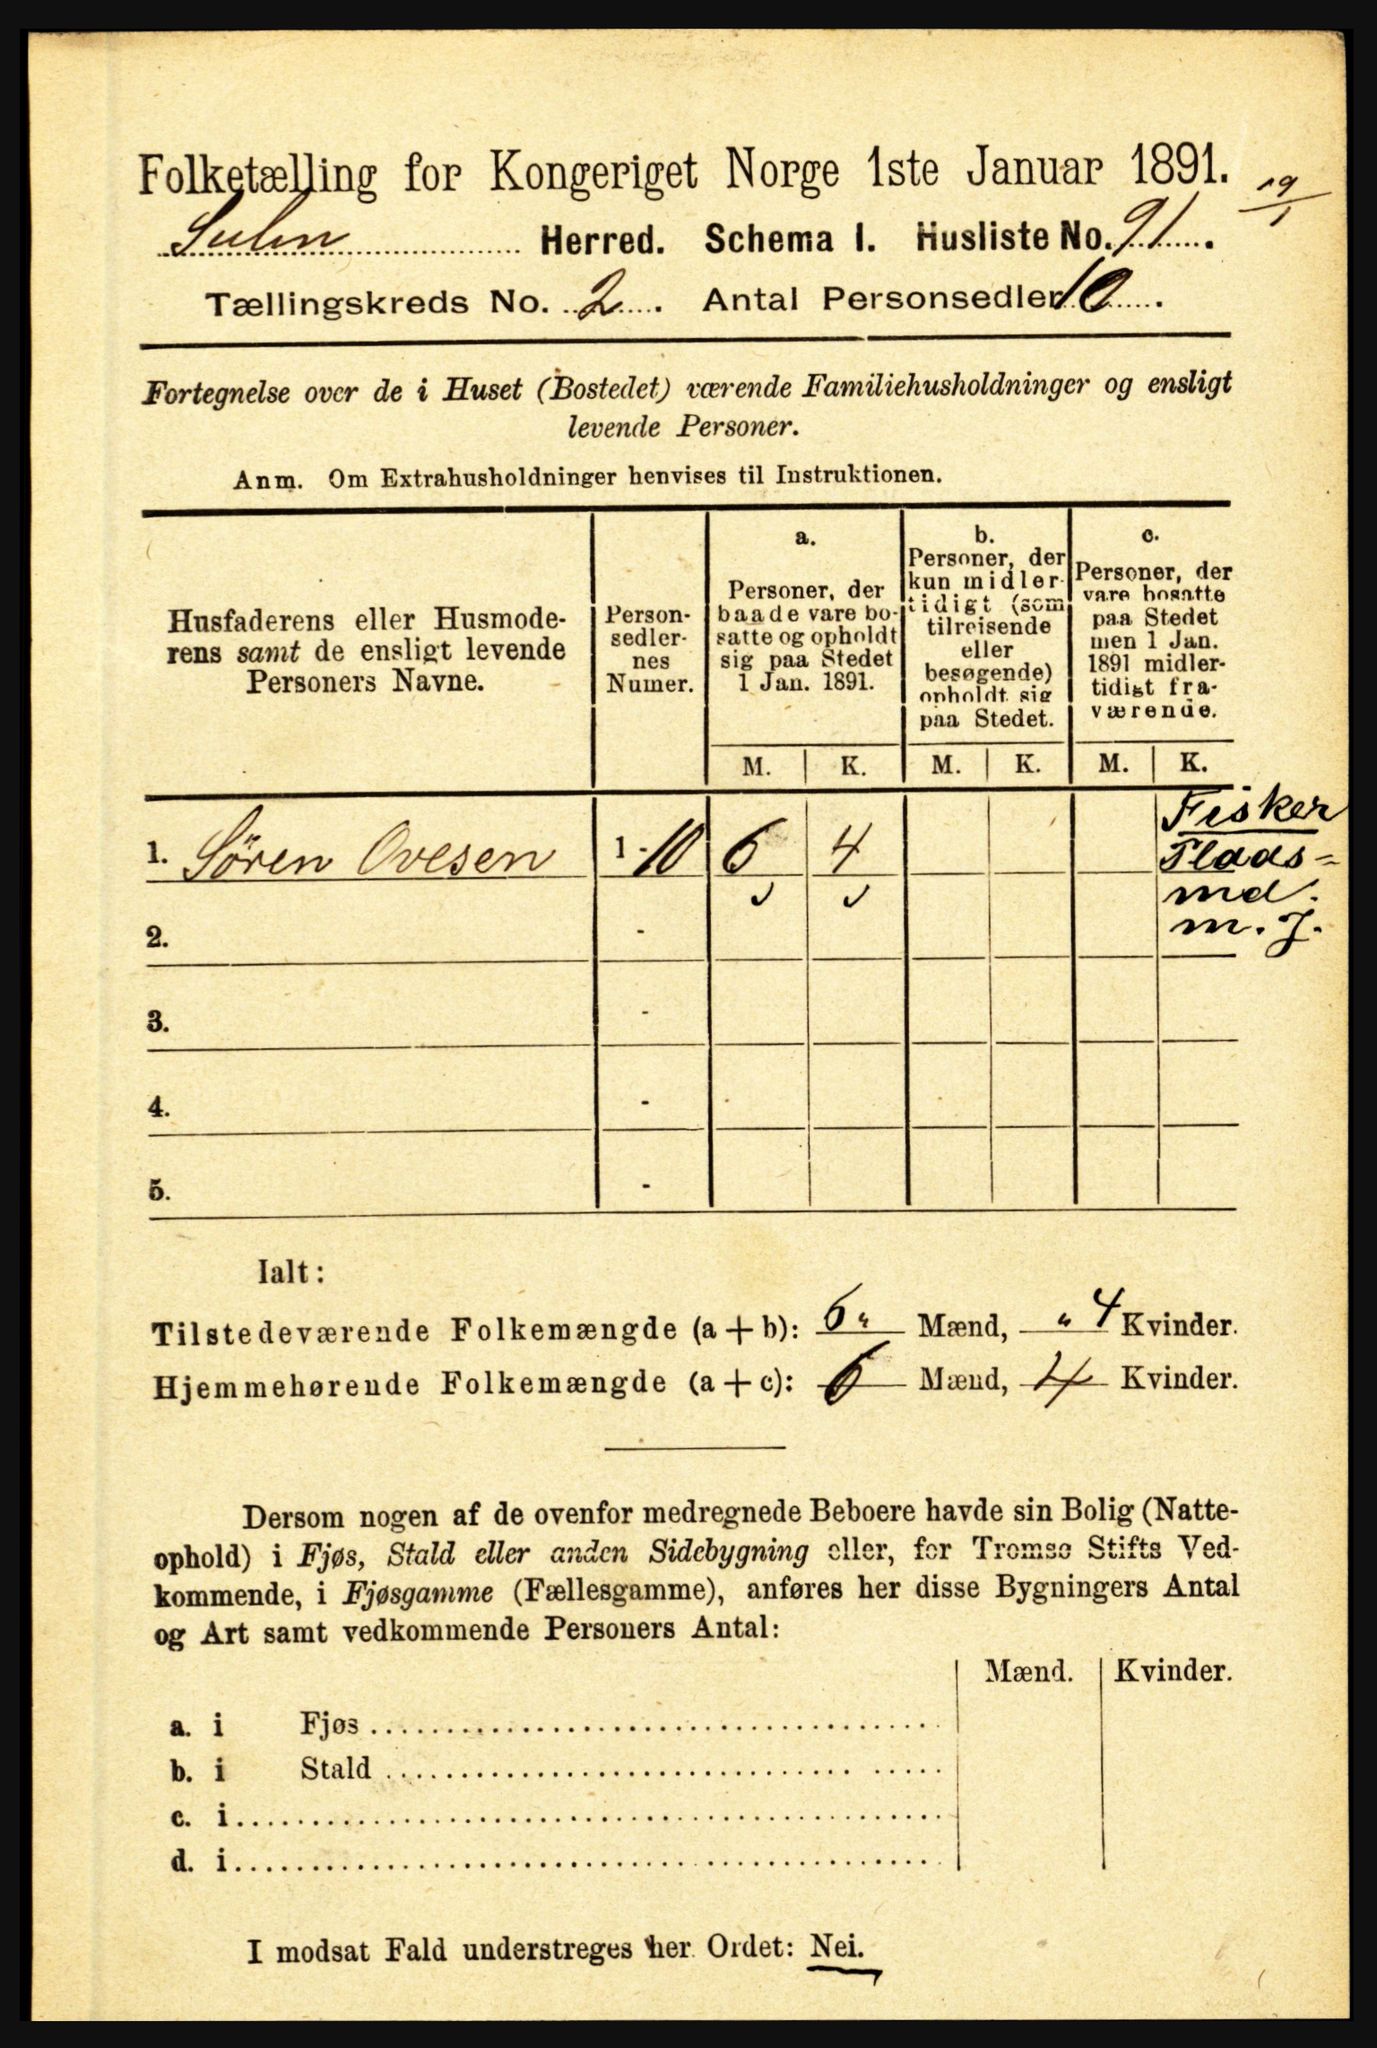 Folketælling for Kongeriget Norge 1ste Januar 1891.
19/1
Sulen Herred. Schema I. Husliste No. 91.
Tællingskreds No. 2. Antal Personsedler 10.
Fortegnelse over de i Huset (Bostedet) værende Familiehusholdninger og ensligt
levende Personer.
Anm. Om Extrahusholdninger henvises til Instruktionen.
Husfaderens eller Husmode-
rens samt de ensligt levende
Personers Navne.
Person-
sedler-
nes
Numer.
a.
Personer, der
baade vare bo-
satte og opholdt
sig paa Stedet
1 Jan. 1891.
b.
Personer, der
kun midler-
tidigt (som
tilreisende
eller
besøgende)
opholdt sig
paa Stedet.
c.
Personer, der
vare bosatte
paa Stedet
men 1 Jan.
1891 midler-
tidigt fra-
værende.
M. K. M. K. M. K.
1. Sören Ovesen 1 - 10 6 4
Fisker
Plads-
md.
m. J.
2. -
3. -
4. -
5. -
Ialt:
Tilstedeværende Folkemængde (a + b): 6 " Mænd, " 4 Kvinder.
Hjemmehørende Folkemængde (a + c): 6 Mænd, 4 Kvinder.
Dersom nogen af de ovenfor medregnede Beboere havde sin Bolig (Natte-
ophold) i Fjøs, Stald eller anden Sidebygning eller, for Tromsø Stifts Ved-
kommende, i Fjøsgamme (Fællesgamme), anføres her disse Bygningers Antal
og Art samt vedkommende Personers Antal:
Mænd. Kvinder.
a. i Fjøs
b. i Stald
c. i
d. i
I modsat Fald understreges her Ordet: Nei.